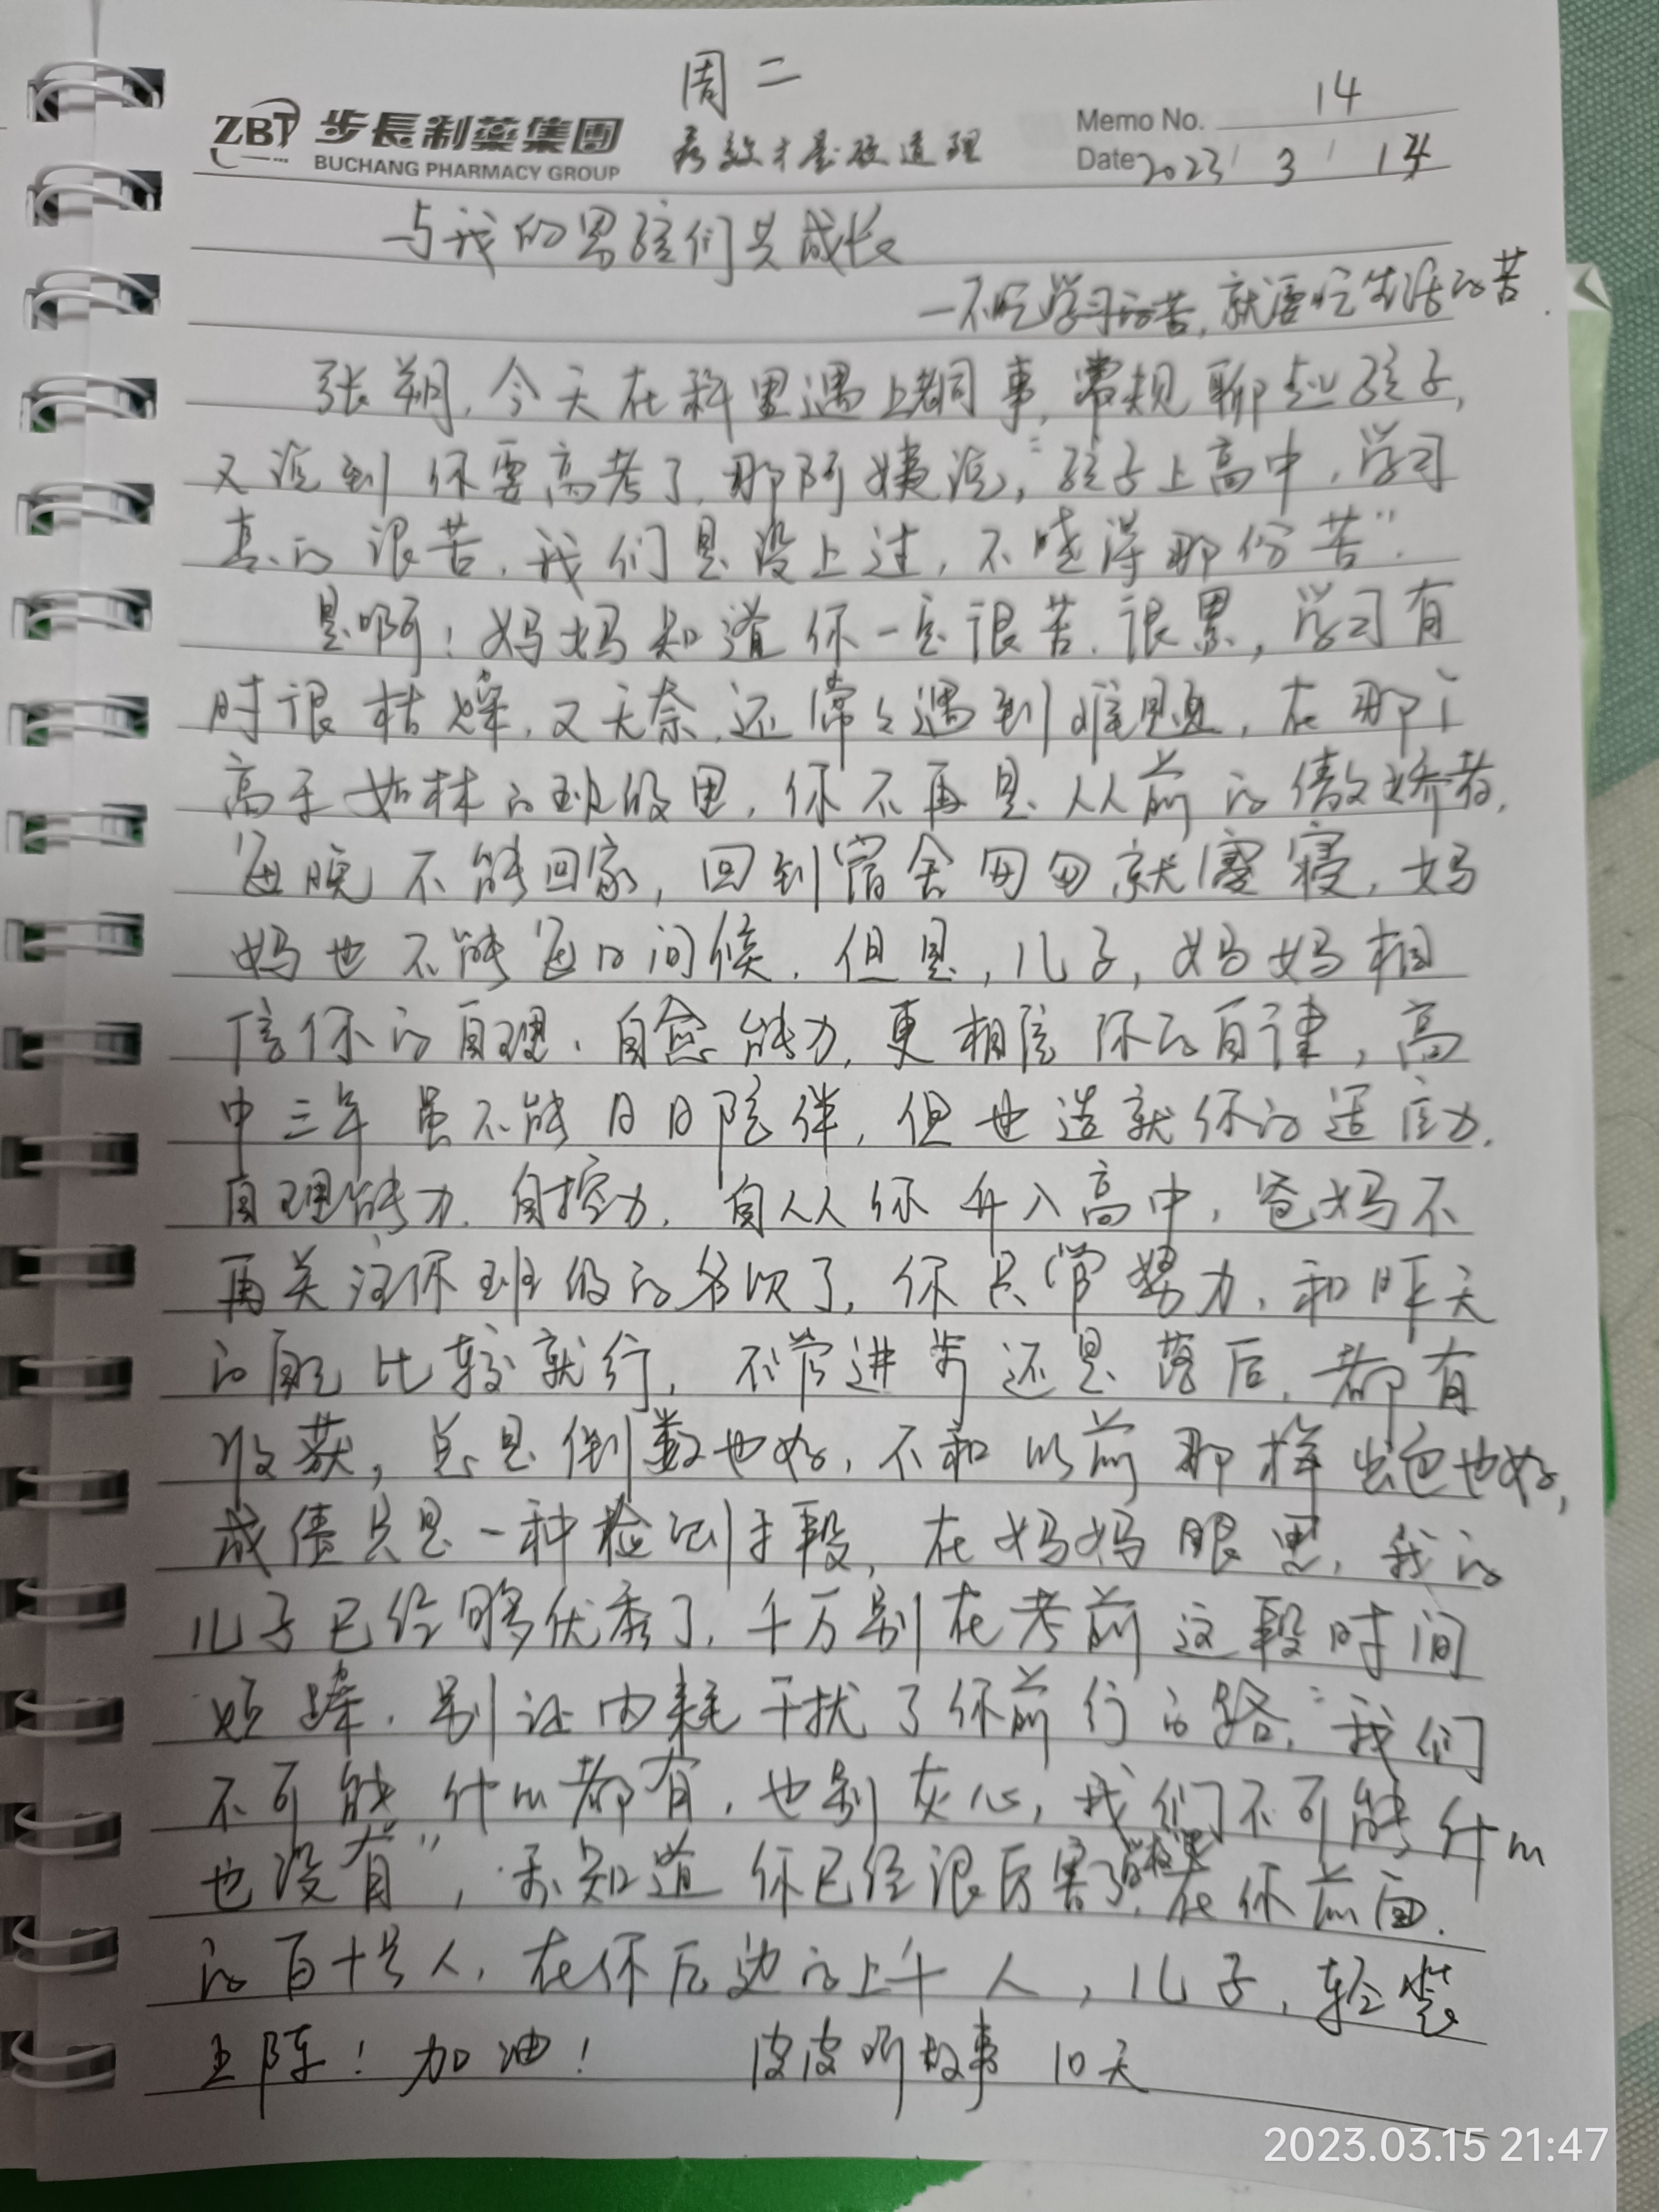 周二
14
ZBT 步長制藥集團
Memo No.
疗效才是硬道理
BUCHANG PHARMACY GROUP
Date 2023/3/14
与我的男孩们共成长
—不吃学习的苦,就要吃生活的苦.
张朔,今天在科里遇上老同事,常规聊起孩子,
又说到你要高考了,那阿姨说,“孩子上高中,学习
真的很苦,我们是没上过,不晓得那份苦”.
是啊!妈妈知道你一定很苦.很累,学习有
时很枯燥,又无奈,还常々遇到难题,在那个
高手如林的班级里,你不再是从前的傲娇者,
每晚不能回家,回到宿舍匆匆就寝,妈
妈也不能每日问候.但是,儿子,妈妈相
信你的自理、自愈能力,更相信你的自律,高
中三年虽不能日日陪伴,但也造就你的适应力.
自理能力.自控力.自从你升入高中,爸妈不
再关注你班级的名次了,你只管努力,和昨天
的自己比较就行,不管进步还是落后,都有
收获,总是倒数也好,不和以前那样出色也好,
成绩只是一种检测手段,在妈妈眼里,我的
儿子已经够优秀了,千万别在考前这段时间
烦躁.别让内耗干扰了你前行的路,“我们
不可能什么都有,也别灰心,我们不可能什么
也没有”,要知道你已经很厉害了,在你前面.
的百十号人,在你后边的上千人,儿子,轻装
上阵!加油! 皮皮听故事 10天
2023.03.15 21:47